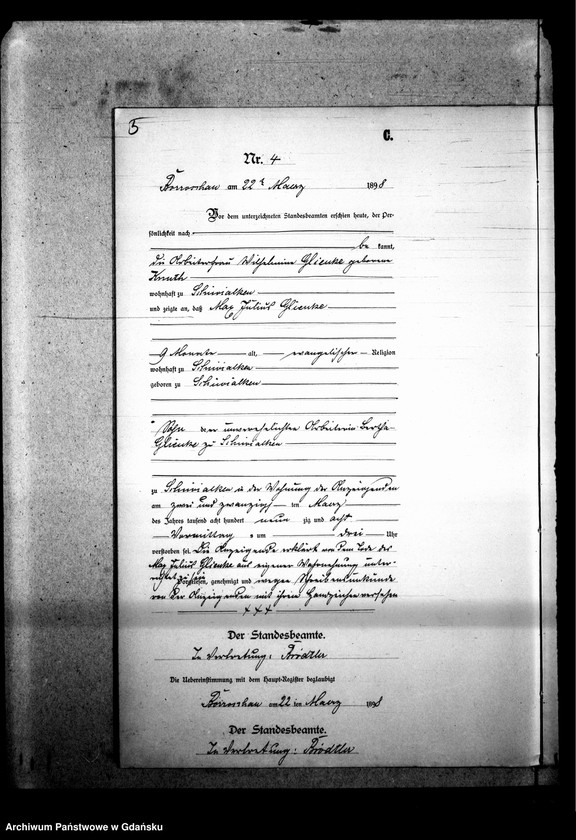 5
C.
Nr. 4
Borroschau am 22ten Maerz 1898
Vor dem unterzeichneten Standesbeamten erschien heute, der Per-
sönlichkeit nach
be kannt,
die Arbeiterfrau Wilhelmine Glienke geborene
Knuth
wohnhaft zu Schiwialken
und zeigte an, daß Max Julius Glienke
9 Monate alt, evangelischer Religion
wohnhaft zu Schiwialken
geboren zu Schiwialken
Sohn der unverehelichten Arbeiterin Bertha
Glienke zu Schiwialken
zu Schiwialken in der Wohnung der Anzeigenden
am zwei und zwanzigsten Maerz
des Jahres tausend acht hundert neun zig und acht
Vormittag s um drei Uhr
verstorben sei. Die Anzeigende erklärt von dem Tode des
Max Julius Glienke aus eigener Wahrnehmung unter-
richtet zu sein
Vorgelesen, genehmigt und wegen Schreibensunkunde
von der Anzeigenden mit ihrem Handzeichen versehen
+++
Der Standesbeamte.
In Vertretung:
Die Uebereinstimmung mit dem Haupt-Register beglaubigt
Borroschau am 22 ten Maerz 1898
Der Standesbeamte.
In Vertretung:
Archiwum Państwowe w Gdańsku